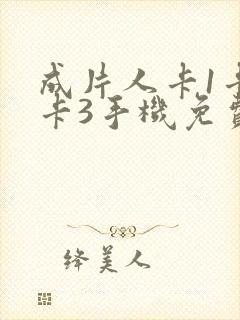 成片人卡1卡
卡3手機免費
绛美人